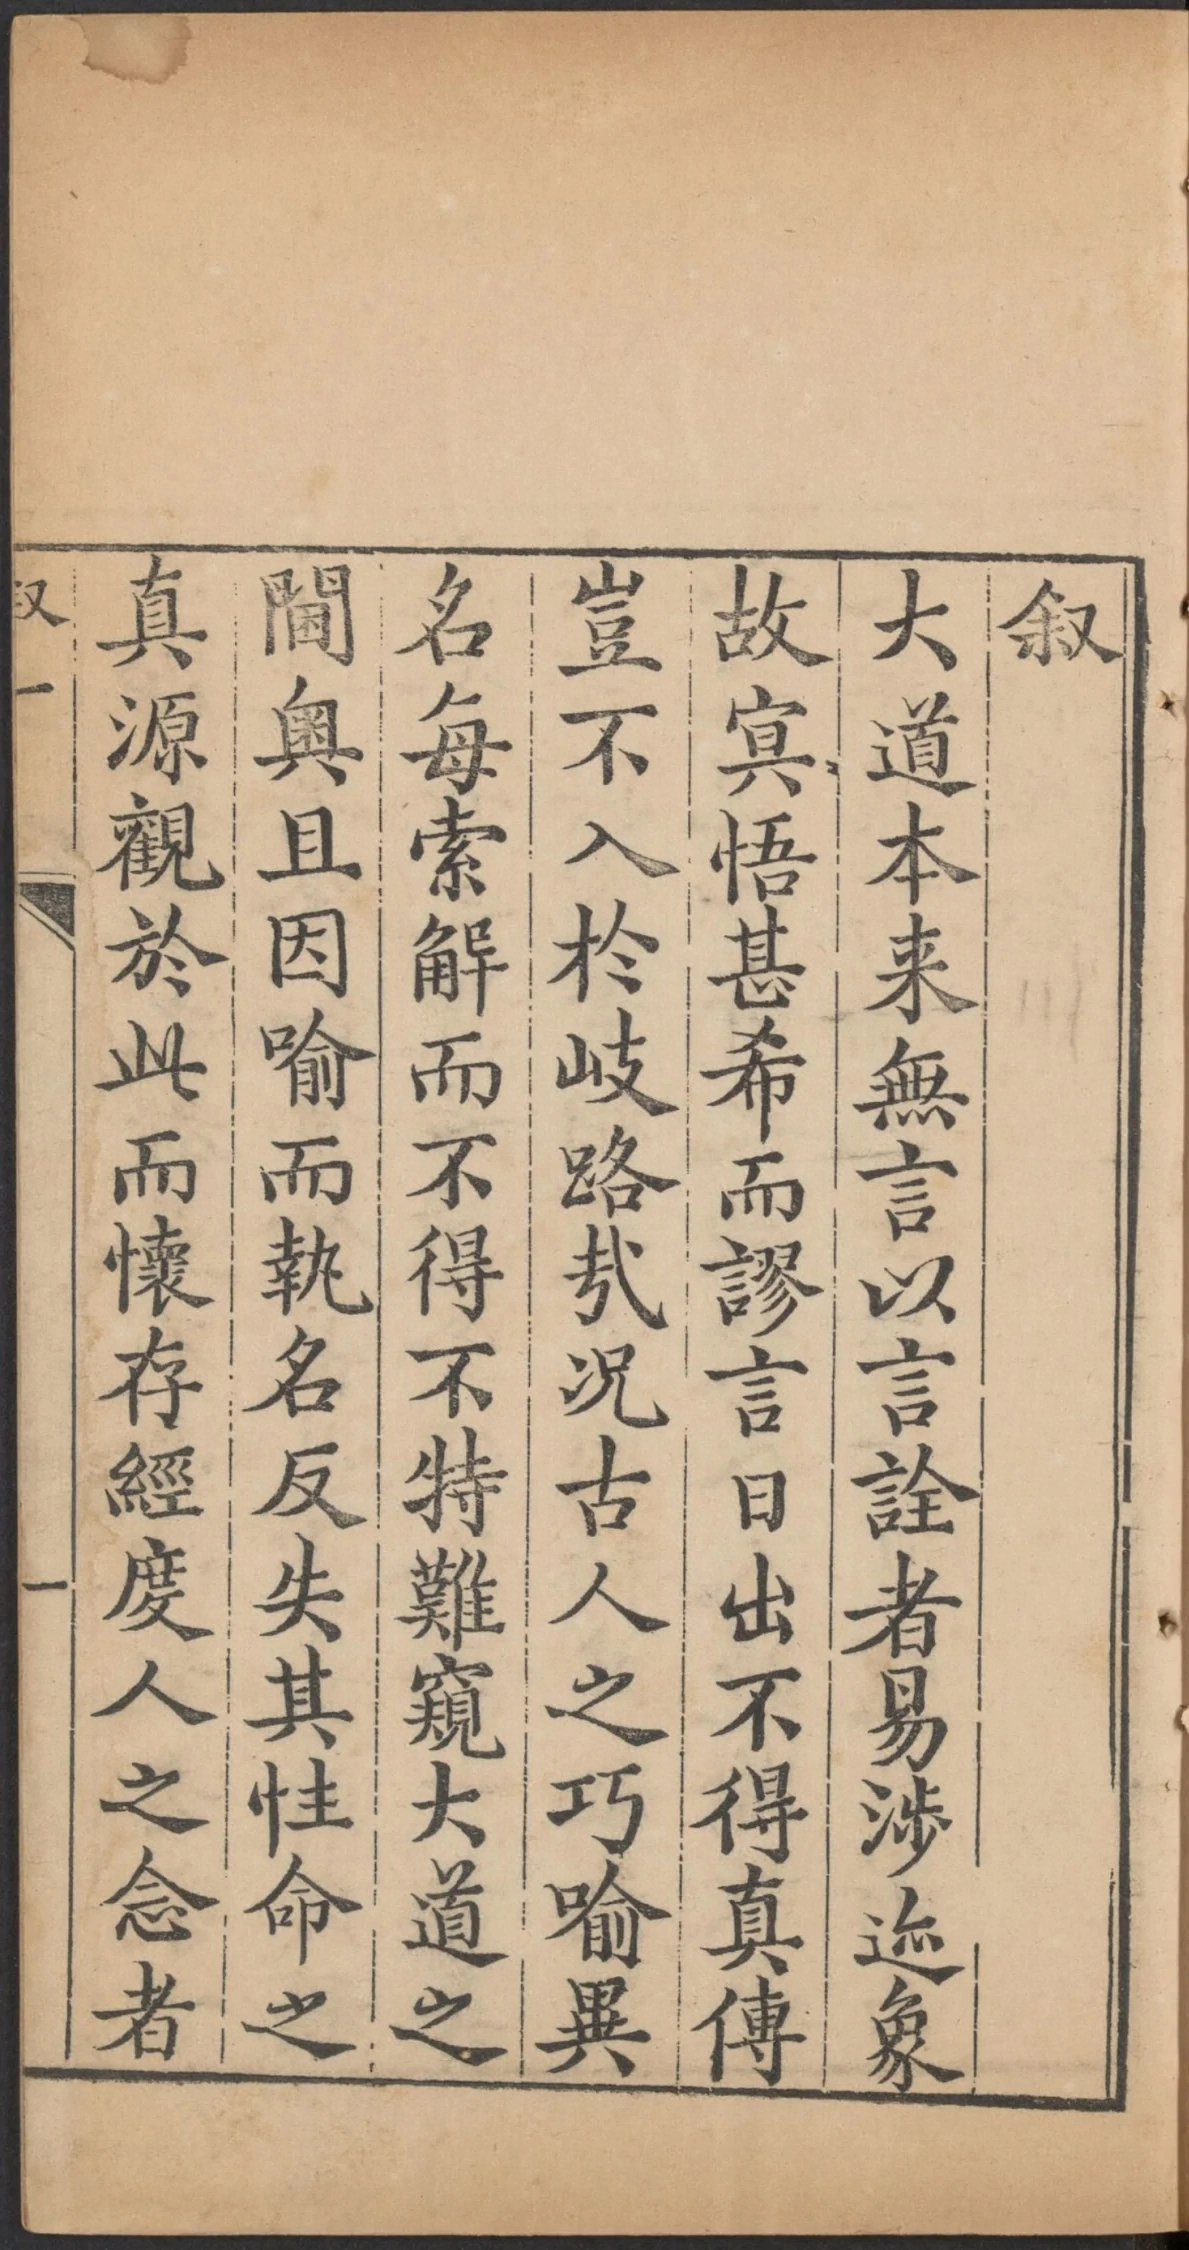 叙
大道本来無言以言詮者易涉迹象
故㝠悟甚希而謬言日出不得真傳
豈不入於岐路㢤况古人之巧喻異
名每索解而不得不特難窺大道之
閫奥且因喻而執名反失其性命之
真源觀於此而懷存經度人之念者
叙一
一